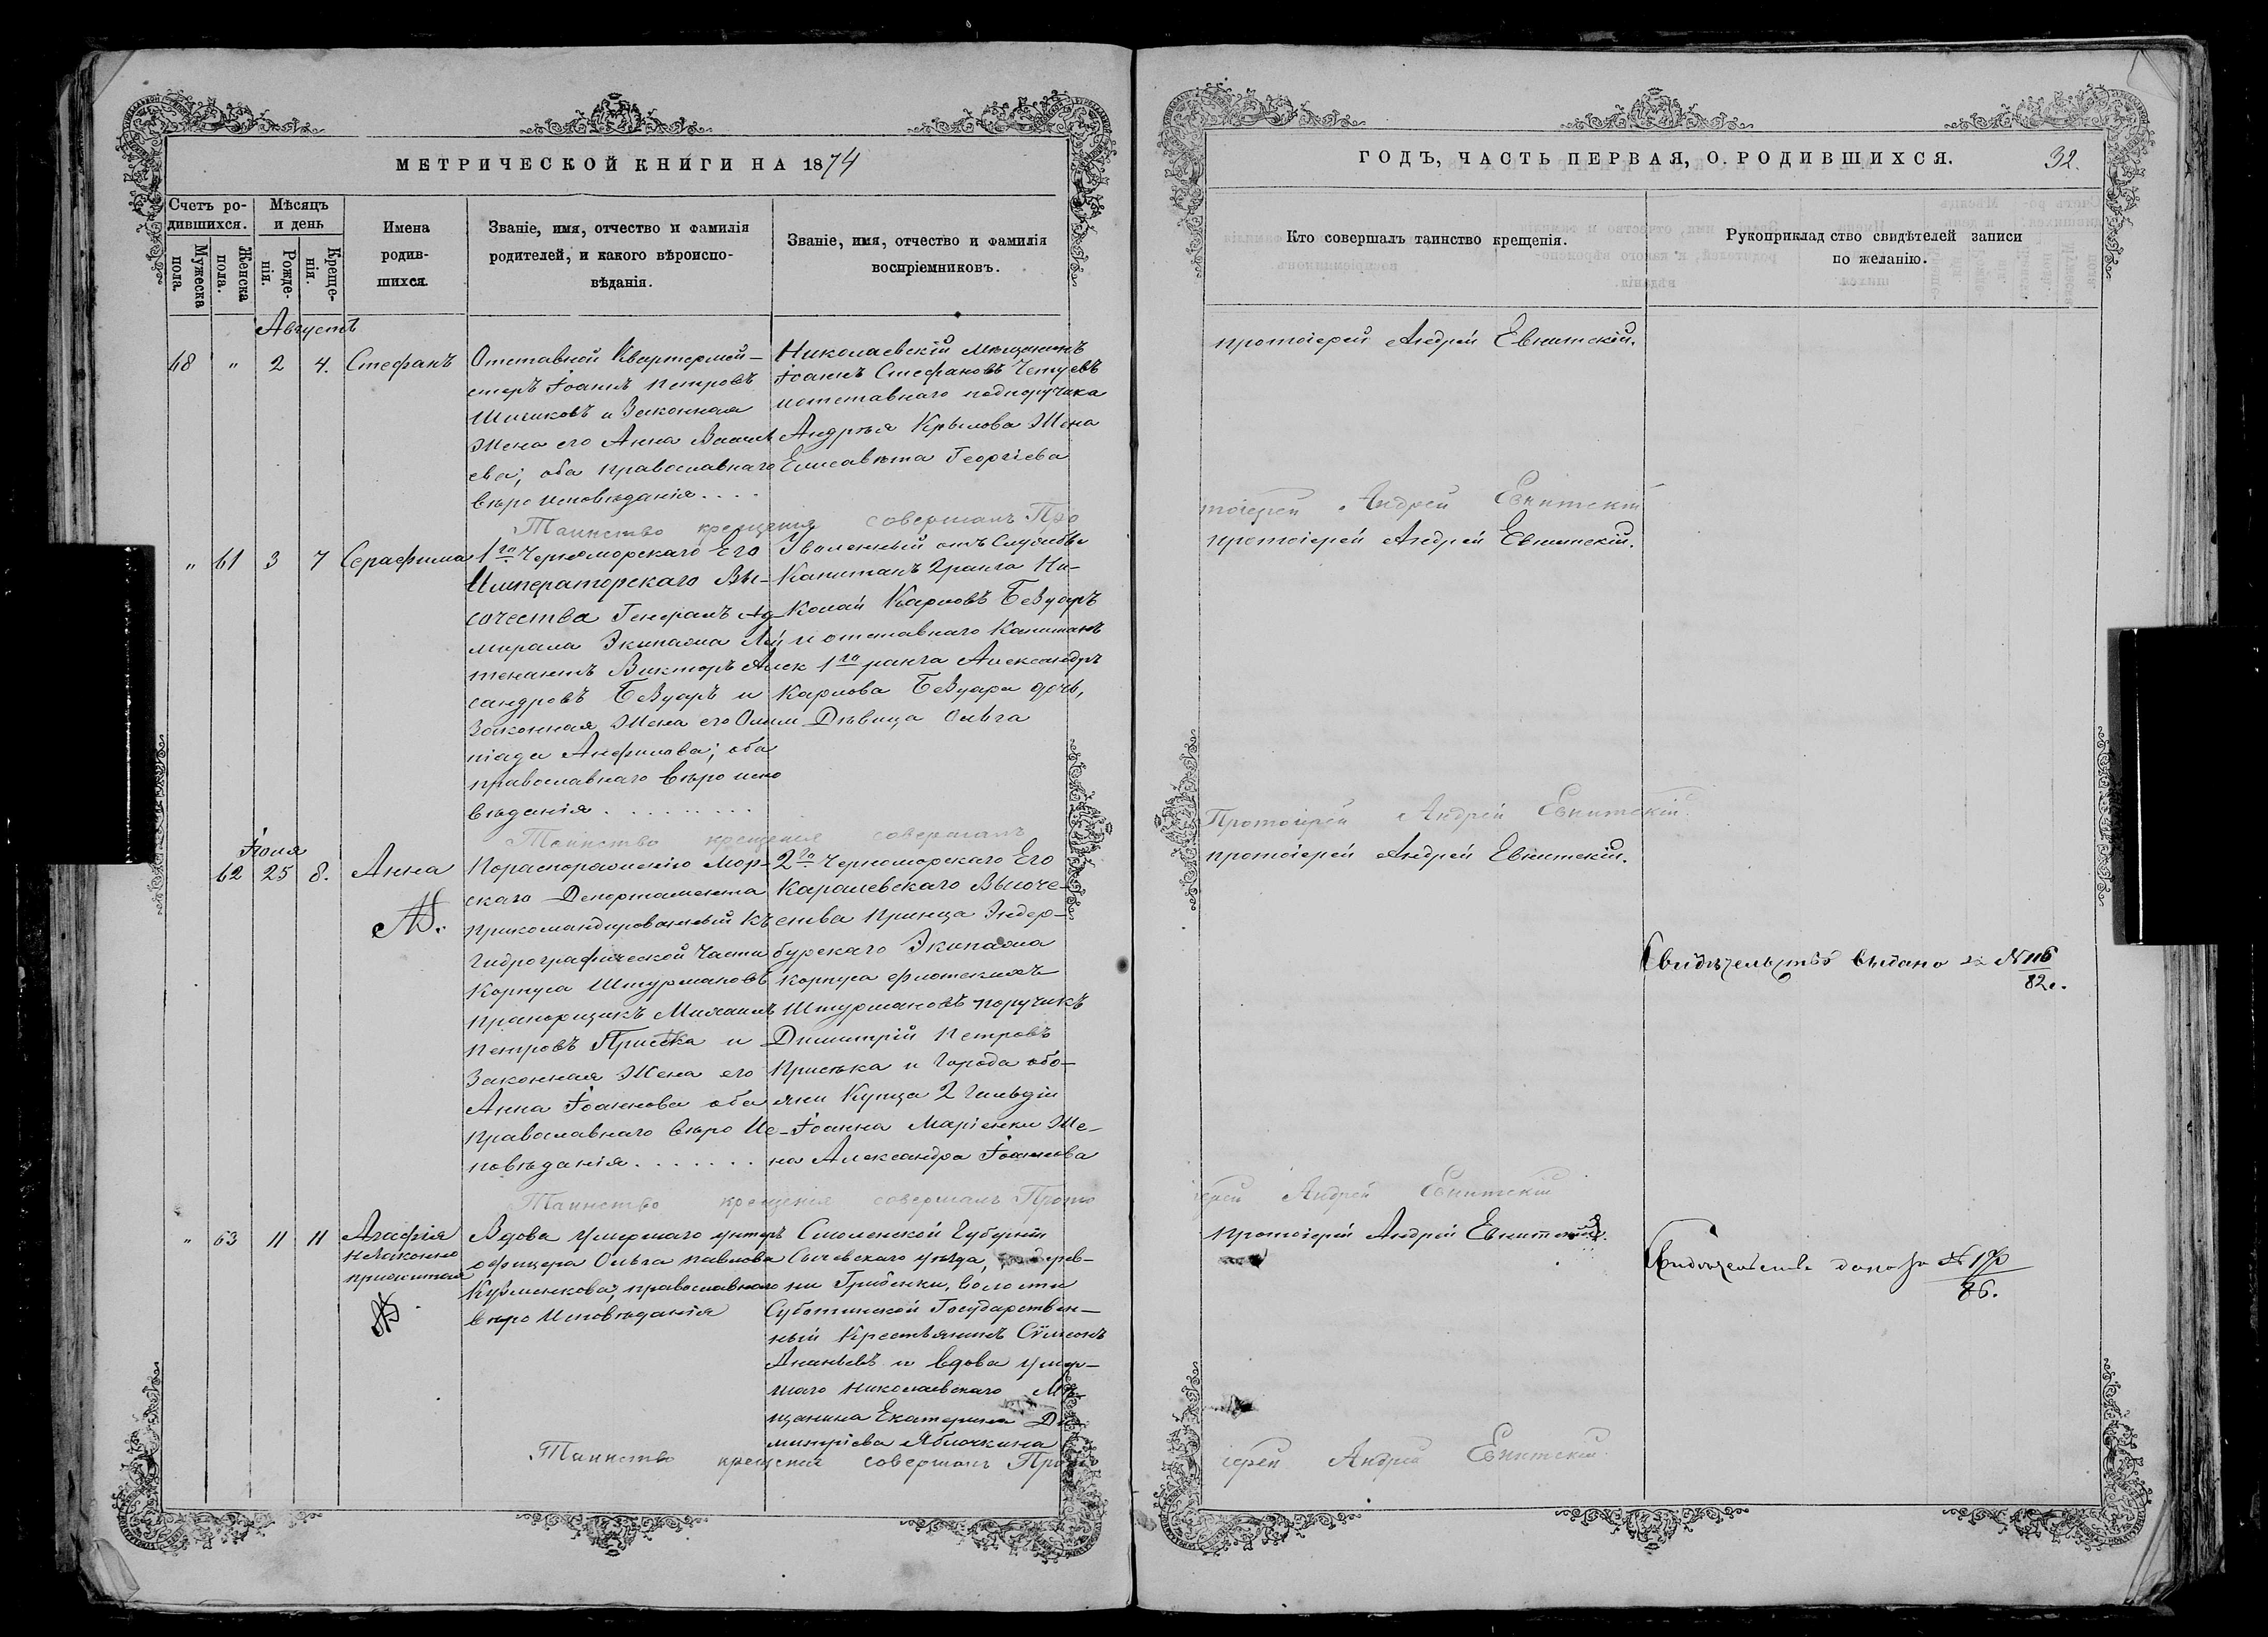 МЕТРИЧЕСКОЙ КНИГИ НА 1874
Счетъ ро-
дившихся.
Мужеска
пола.
Женска
пола.
Мѣсяцъ
и день
Рожде-
нія.
Креще-
нія.
Имена
родив-
шихся.
Званіе, имя, отчество и фамилія
родителей, и какого вѣроиспо-
вѣданія.
Званіе, имя, отчество и фамилія
воспріемниковъ.
Августъ
68 " 2 4. Стефанъ
Отставной Квартермей-
стеръ Іоаннъ Петровъ
Шишковъ и Законная
Жена его Анна
ева; оба православнаго
вѣроисповѣданія....
Николаевскій мѣщанинъ
Іоаннъ Стефановъ Четуевъ
и отставнаго подпоручика
Андрѣя Крылова Жена
Елисавѣта Георгіева
Таинство крещенія совершалъ Про
" 61 3 7 Серафима
1го Черноморскаго Его
Императорскаго Вы-
сочества Генералъ Ад-
мирала Экипажа Лей
тенантъ Викторъ Алек
сандровъ Безуаръ и
Законная Жена его Олим
піада Анфилова; оба
православнаго вѣроиспо
вѣданія.........
Уволенный отъ Службы
Капитанъ 2 ранга Ни-
колай Карловъ Безуаръ
и отставнаго Капитанъ
1го ранга Александръ
Карлова Безуара дочь,
Дѣвица Ольга
Таинство крещенія совершалъ
Іюля
62 25 8. Анна
Пораспоряженію Мор-
скаго Департамента
прикомандированный къ
Гидрографической Части
Корпуса Штурмановъ
Прапорщикъ Михаилъ
Петровъ Присѣка и
Законная Жена его
Анна Іоаннова оба
православнаго вѣро Ис-
повѣданія.......
2го Черноморскаго Его
Каралевскаго Высоче-
ства Принца Эндер-
бурскаго Экипажа
Корпуса флотскихъ
Штурмановъ поручикъ
Димитрій Петровъ
Присѣка и города обо-
яни Купца 2 гильдіи
Іоанна Маріенки Же-
на Александра Іоаннова
Таинство крещенія совершалъ Прото
" 63 11 11 Агафія
незаконно
прижитая
Вдова умершаго унтеръ
офицера Ольга павлова
Кузменкова, православнаго
вѣро Исповѣданія
Смоленской Губерніи
Сычевскаго уѣзда, дерев-
ни Грибенки, волости
Суботинской Государствен-
ный Крестьянинъ Сѵмеонъ
Ананьевъ и вдова умер-
шаго николаевскаго Мѣ-
щанина Екатерина Ди
митріева Яблочкина
Таинство крещенія совершалъ Прото
ГОДЪ, ЧАСТЬ ПЕРВАЯ, О РОДИВШИХСЯ. 32.
Кто совершалъ таинство крещенія.
Рукоприкладство свидѣтелей записи
по желанію.
протоіерей Андрей Евнитскій.
тоіерей Андрей Евнитскій
протоіерей Андрей Евнитскій.
Протоіерей Андрей Евнитскій
протоіерей Андрей Евнитскій.
Свидѣтельство выдано за N 116
82 г.
іерей Андрей Евнитскій
протоіерей Андрей Евнитскій.
Свидѣтельство дано за N
86.
іерей Андрей Евнитскій